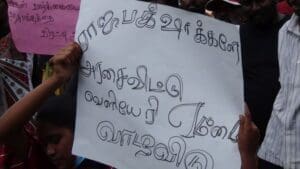 ராஜபக்ஷாக்களே
அரசைவிட்டு
வெளியேறி எம்மை
வாழவிடு